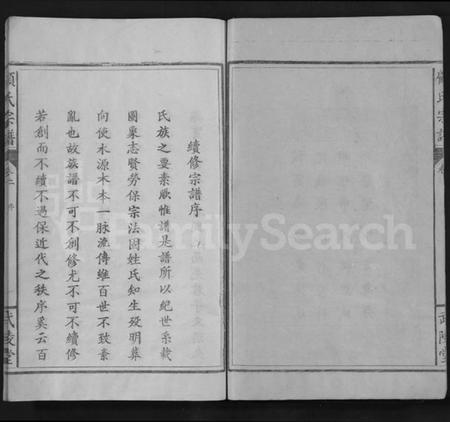 顧氏宗譜
武陵堂
續修宗譜序
氏族之要素厥惟譜是譜所以紀世系載
圖彙志賢勞保宗法固姓氏知生歿明葬
向使水源木本一脉流傳維百世不致紊
亂也故族譜不可不創修尤不可不續修
若創而不續不過保近代之秩序奚云百
顧氏宗譜
卷二
序
武陵堂
FamilySearch